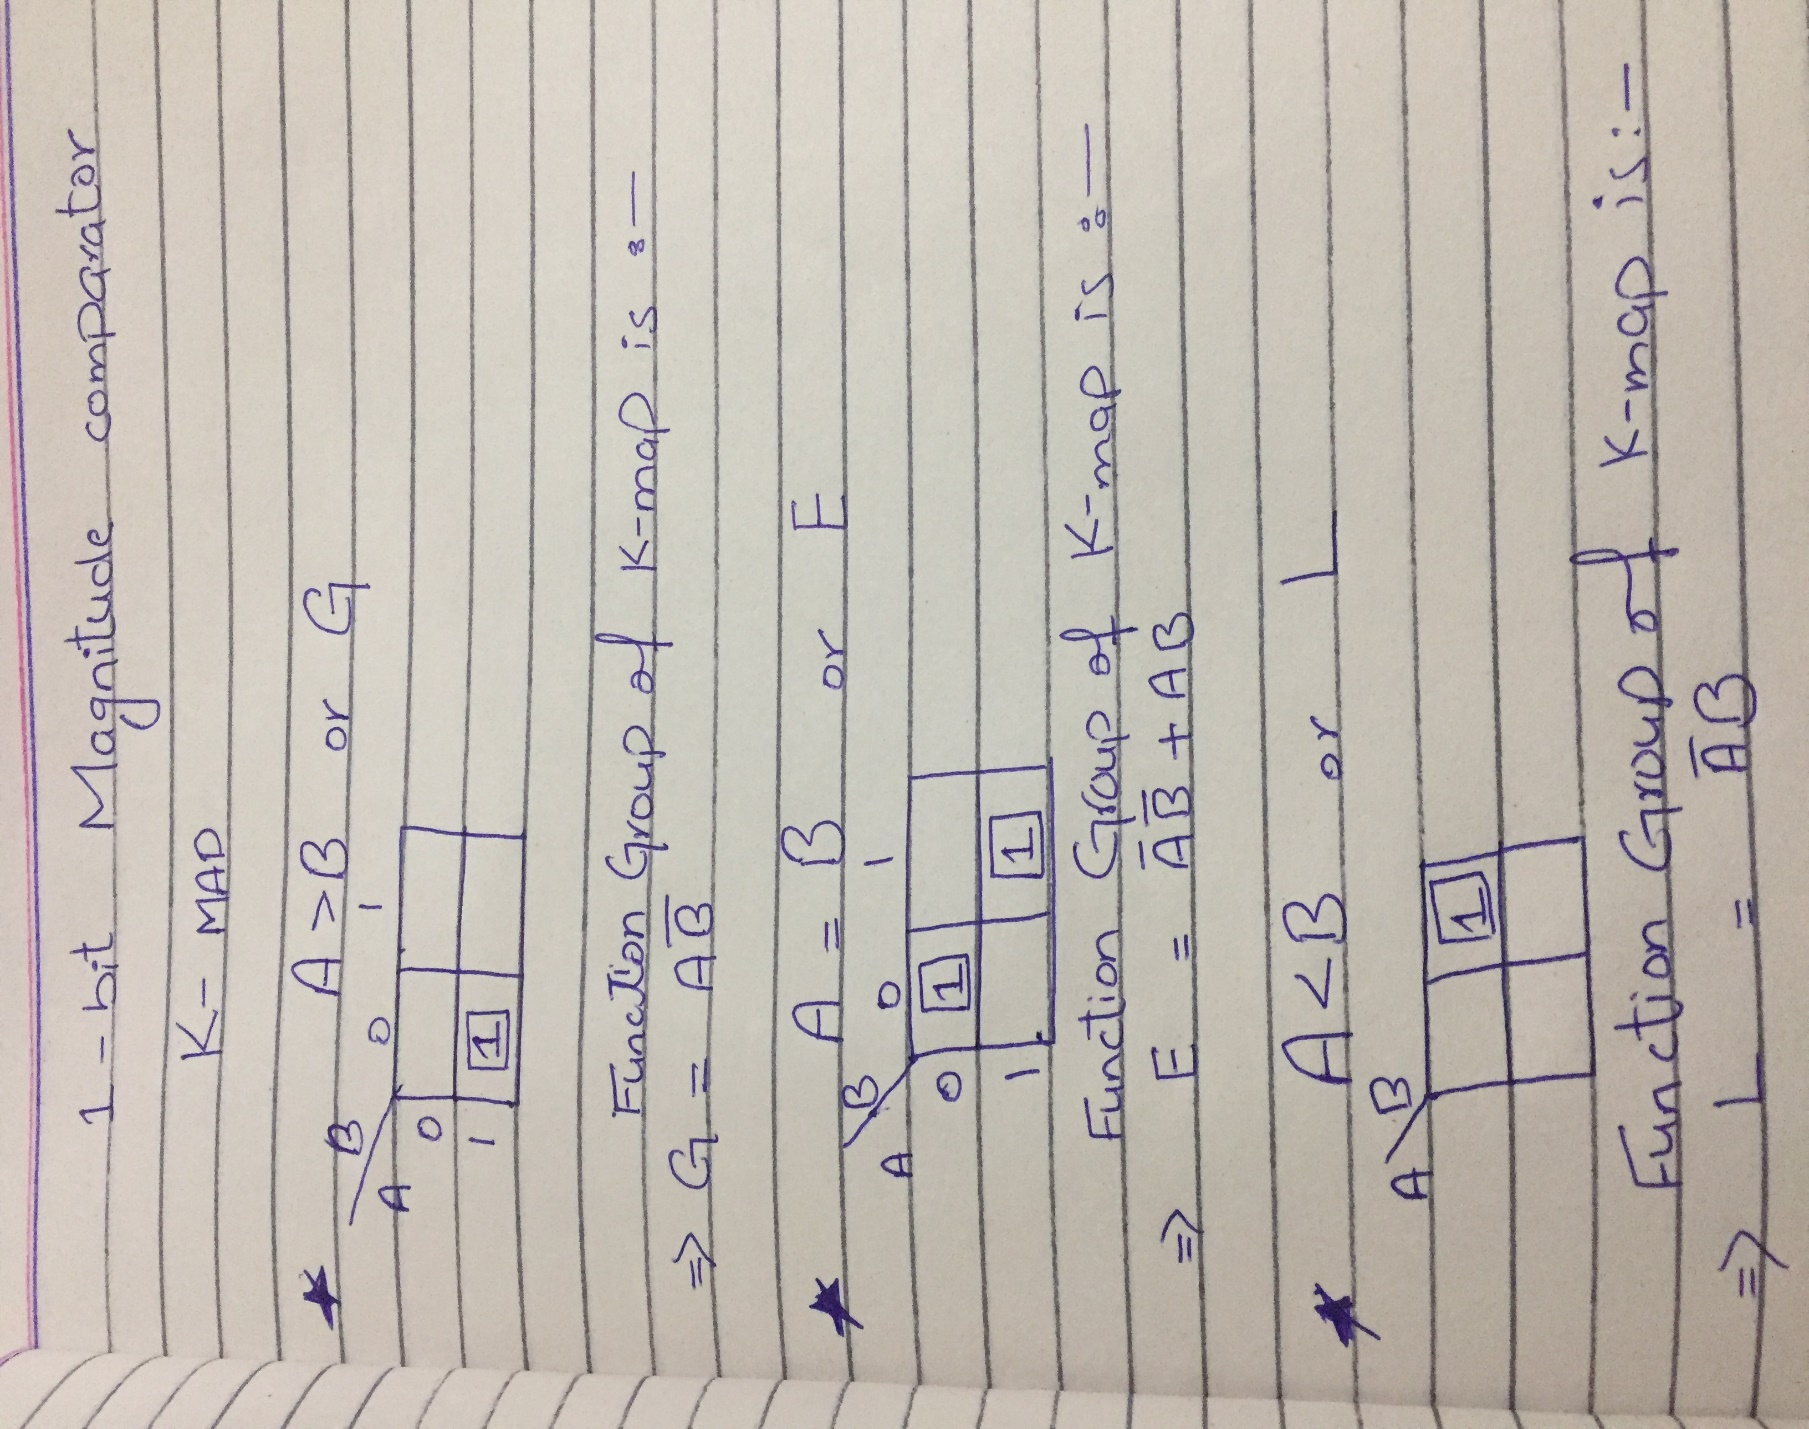 1-bit Magnitude comparator
K-MAP
★ A>B or G
B
A
0 1
0
1 1
Function Group of K-map is :-
⇒ G = AB̅
★ A = B or E
B
A
0 1
0 1
1 1
Function Group of K-map is :-
⇒ E = A̅B̅ + AB
★ A<B or L
A B
1
Function Group of K-map is:-
⇒ L = A̅B